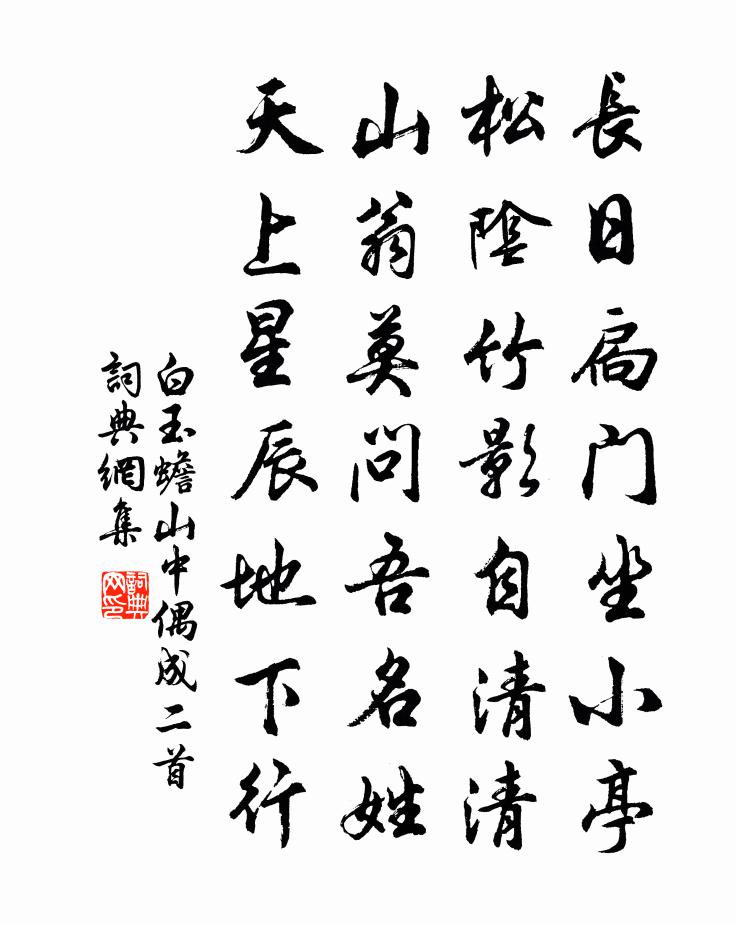 長日扃門坐小亭
松陰竹影自清清
山翁莫問吾名姓
天上星辰地下行
白玉蟾山中偶成二首
詞典網集
詞典網印